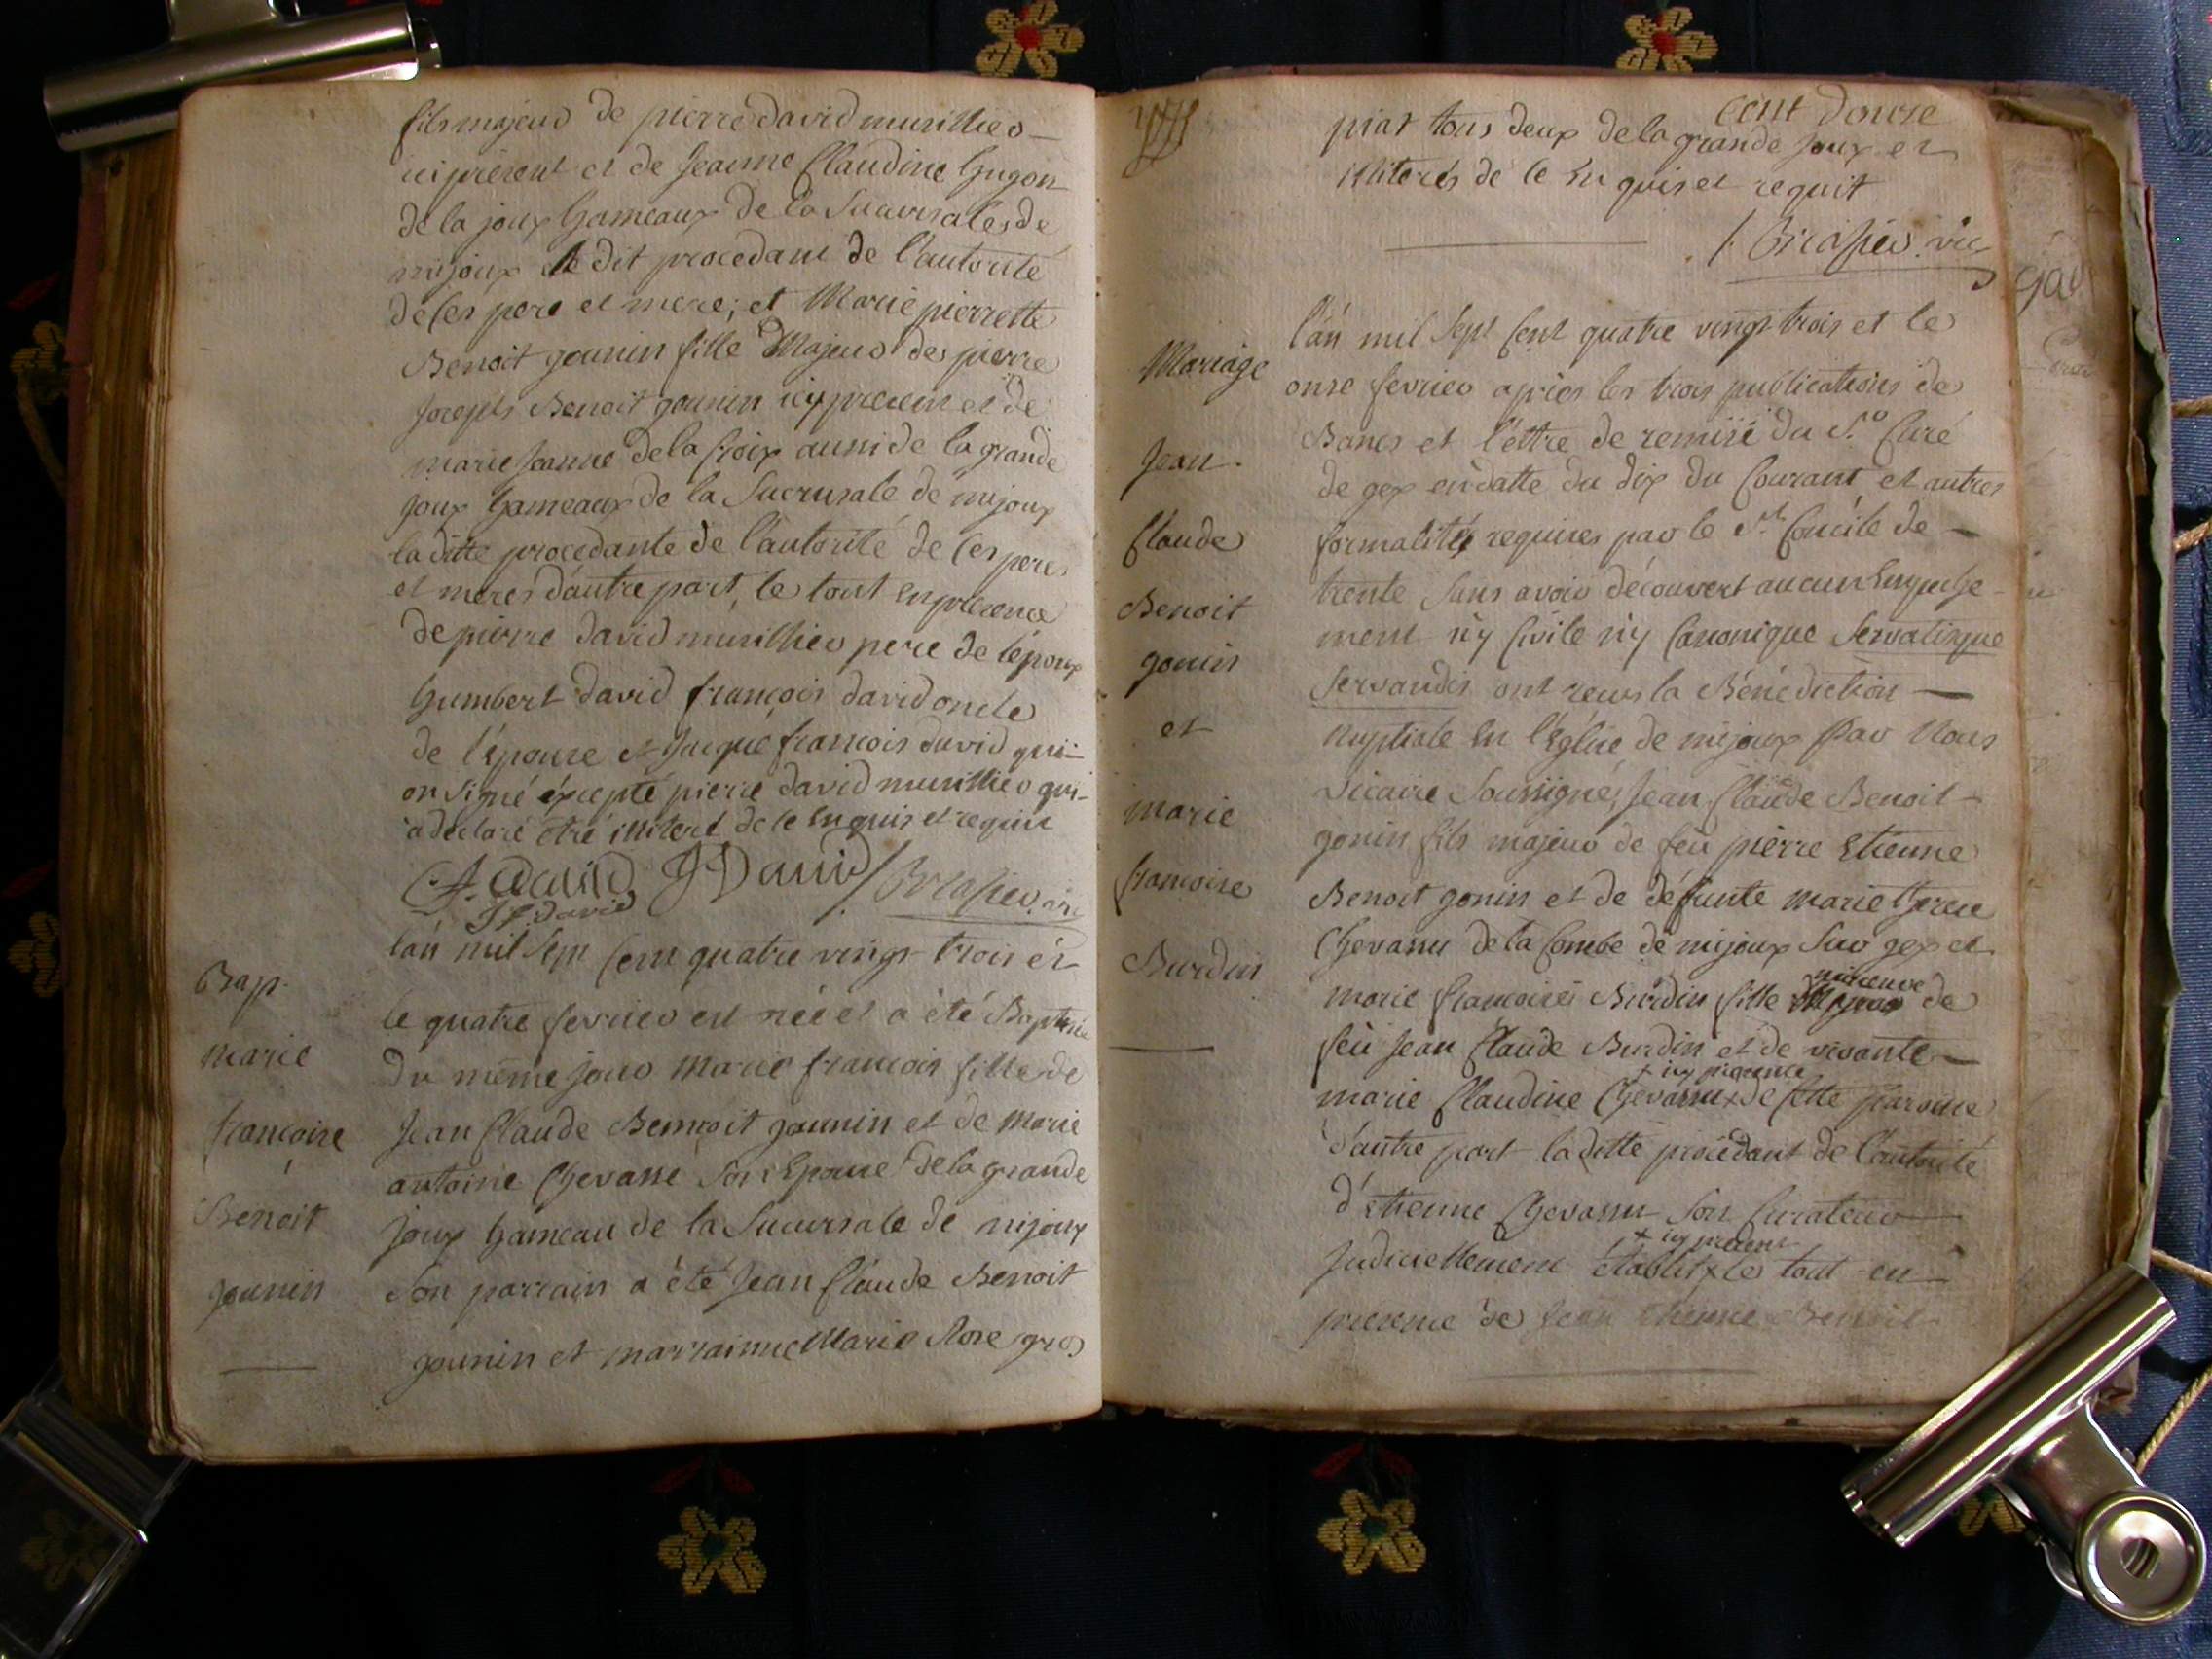 fils majeur de pierre david murillier
ici présent et de Jeanne Claudine Gugon
de la joux hameaux de la Sucursales de
mijoux le dit procedant de l'autorité
de ses pere et mere; et Marie pierrette
Benoit gounin fille Majeur des pierre
joseph Benoit gounin icy present et de
marie Jeanne de la Croix aussi de la grande
joux hameaux de la Sucrusale de mijoux
la ditte procedante de l'autorité de ses peres
et meres d'autre part, le tout en présence
de pierre david murillier pere de l'époux
humbert david françois david oncle
de l'épouse et Jacque françois david qui
on signé éxcepté pierre david murillier qui
a declaré étre illiteré de ce enquis et requis
f. david J David
J f. david
l'an mil sept cent quatre vingt trois et
Bap.
le quatre fevrier est née et a été Baptisée
marie
du même jour marie françois fille de
françoise
Jean Claude Bennoit gounin et de marie
antoine Chevasse son Epouse de la grande
Benoit
joux hameau de la Sucursale de mijoux
gounin
Son parrain a été Jean Claude Benoit
gounin et marrainne Marie Rose gros
cent douze
piat tous deux de la grande joux et
illiterés de ce enquis et requit
vic
l'an mil sept cent quatre vingt trois et le
Mariage
onse fevrier apries les trois publications de
Bancs et l'éttre de remise du Sr Curé
Jean
de gex en datte du dix du Courant et autres
Claude
formalités requises par le St Concile de
trente sans avoir découvert aucun Empeche
Benoit
ment n'y Civile n'y Canonique Servatisque
gonin
Servandis ont reçus la Bénédiction
et
nuptiale en l'Eglise de mijoux Par Nous
Vicaire Soussigné, Jean Claude Benoit
marie
gonin fils majeur de feu pierre Etienne
françoise
Benoit gonin et de défunte marie therese
Burdin
Chevassu de la Combe de mijoux sur gex et
mineure
marie françoise Burdin fille de
feu Jean Claude Burdin et de vivante
+ icy presente
marie Claudine Chevassu x de cette paroisse
d'autre part la ditte procédant de l'autorité
d'etienne Chevassu son Curateur
+ icy présent
Judiciellement établit x le tout en
presence de Jean Etienne Benoit